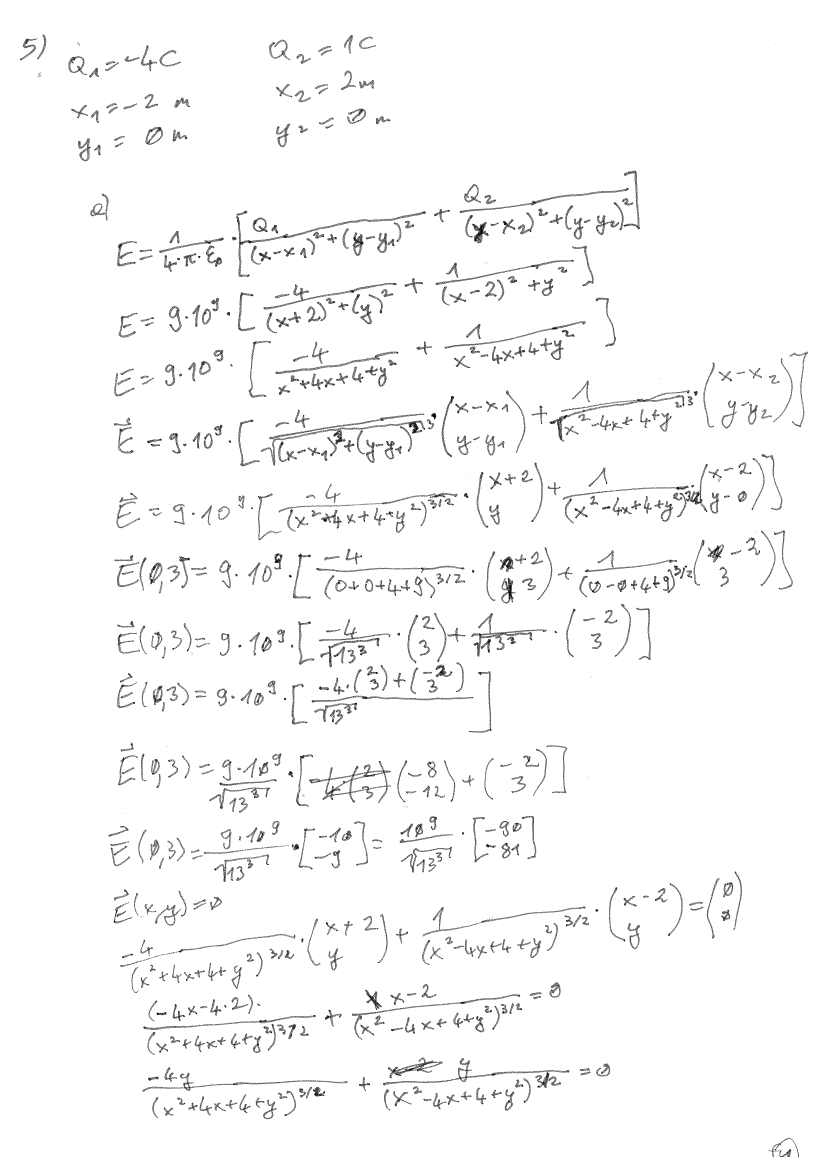 5)
Q₁ = -4C Q₂ = 1C
x₁ = -2 m x₂ = 2m
y₁ = 0 m y₂ = 0 m
a)
E = 1/(4·π·ε₀) · [Q₁/((x-x₁)²+(y-y₁)²) + Q₂/((x-x₂)²+(y-y₂)²)]
E = 9·10⁹ · [-4/((x+2)²+(y)²) + 1/((x-2)²+y²)]
E = 9·10⁹ · [-4/(x²+4x+4+y²) + 1/(x²-4x+4+y²)]
E⃗ = 9·10⁹ · [-4/√((x-x₁)²+(y-y₁)²)³ · (x-x₁ / y-y₁) + 1/√(x²-4x+4+y²)³ · (x-x₂ / y-y₂)]
E⃗ = 9·10⁹ · [-4/(x²+4x+4+y²)^(3/2) · (x+2 / y) + 1/(x²-4x+4+y²)^(3/2) · (x-2 / y-0)]
E⃗(0,3) = 9·10⁹ · [-4/(0+0+4+9)^(3/2) · (+2 / 3) + 1/(0-0+4+9)^(3/2) (-2 / 3)]
E⃗(0,3) = 9·10⁹ · [-4/√13³ · (2 / 3) + 1/√13³ · (-2 / 3)]
E⃗(0,3) = 9·10⁹ · [(-4·(2 / 3) + (-2 / 3))/√13³]
E⃗(0,3) = 9·10⁹/√13³ · [(-8 / -12) + (-2 / 3)]
E⃗(0,3) = 9·10⁹/√13³ · [-10 / -9] = 10⁹/√13³ · [-90 / -81]
E⃗(x,y) = 0
-4/(x²+4x+4+y²)^(3/2) · (x+2 / y) + 1/(x²-4x+4+y²)^(3/2) · (x-2 / y) = (0 / 0)
(-4x-4·2)·/(x²+4x+4+y²)^(3/2) + x-2/(x²-4x+4+y²)^(3/2) = 0
-4y/(x²+4x+4+y²)^(3/2) + y/(x²-4x+4+y²)^(3/2) = 0